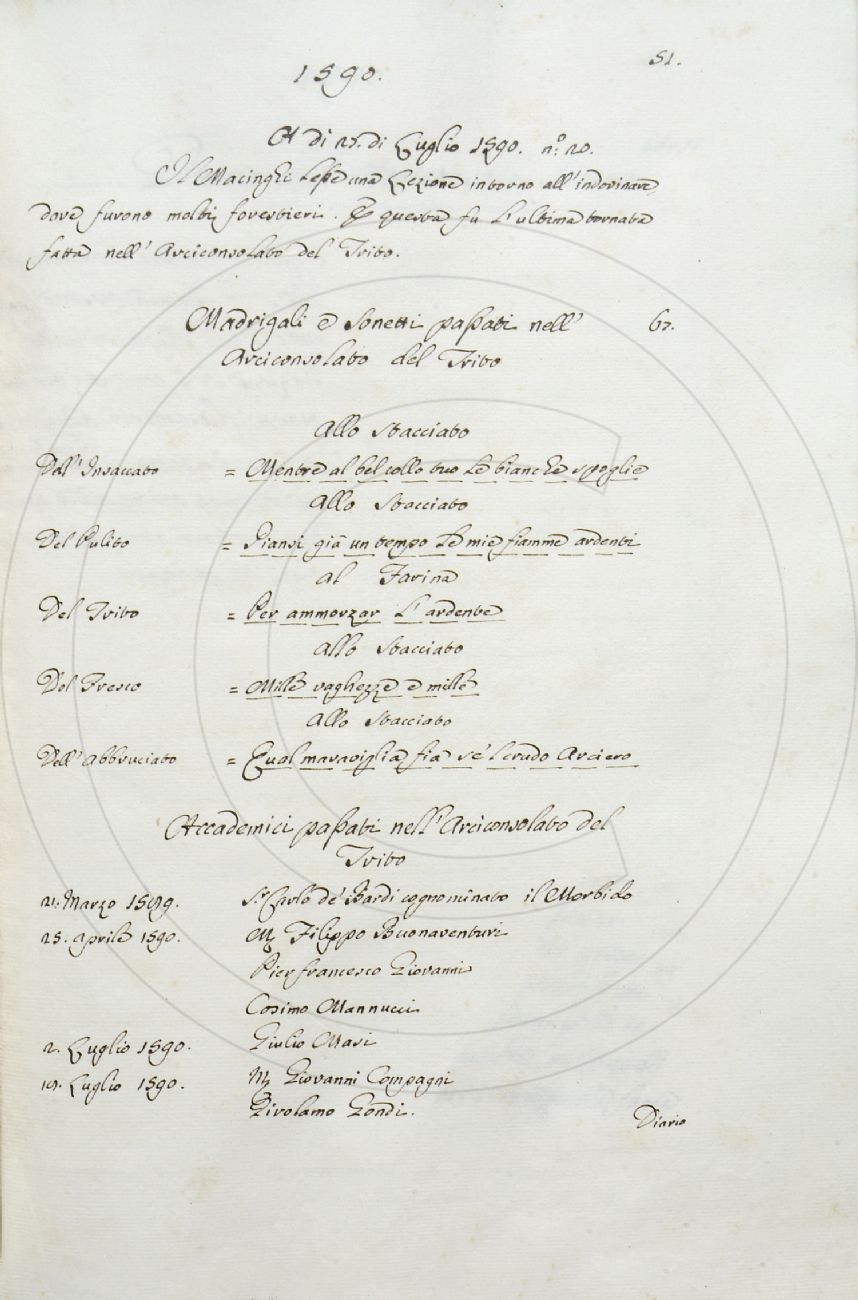 1590.
51.
A di 25. di Luglio 1590. n.º 20.
Il Macinghi lesse una Lezione intorno all'indovinare,
dove furono molti forestieri. E questa fu l'ultima tornata
fatta nell'Arciconsolato del Trito.
Madrigali e Sonetti passati nell' 67.
Arciconsolato del Trito
Allo Stacciato
Dell'Insaccato = Mentre al bel collo tuo le bianche spoglie
Allo Stacciato
Del Pulito = Piansi già un tempo le mie fiamme ardenti
Al Farina
Del Trito = Per ammorzar l'ardente
Allo Stacciato
Del Fresco = Mille vaghezze e mille
Allo Stacciato
Dell'Abbruciato = Qual maraviglia fia se'l crudo Arciero
Accademici passati nell'Arciconsolato del
Trito
21. Marzo 1589. S.r Carlo de' Bardi cognominato il Morbido
25. Aprile 1590. M. Filippo Buonaventuri
Pierfrancesco Giovanni
Cosimo Mannucci
2. Luglio 1590. Giulio Masi
19. Luglio 1590. M. Giovanni Compagni
Girolamo Gondi.
Diario